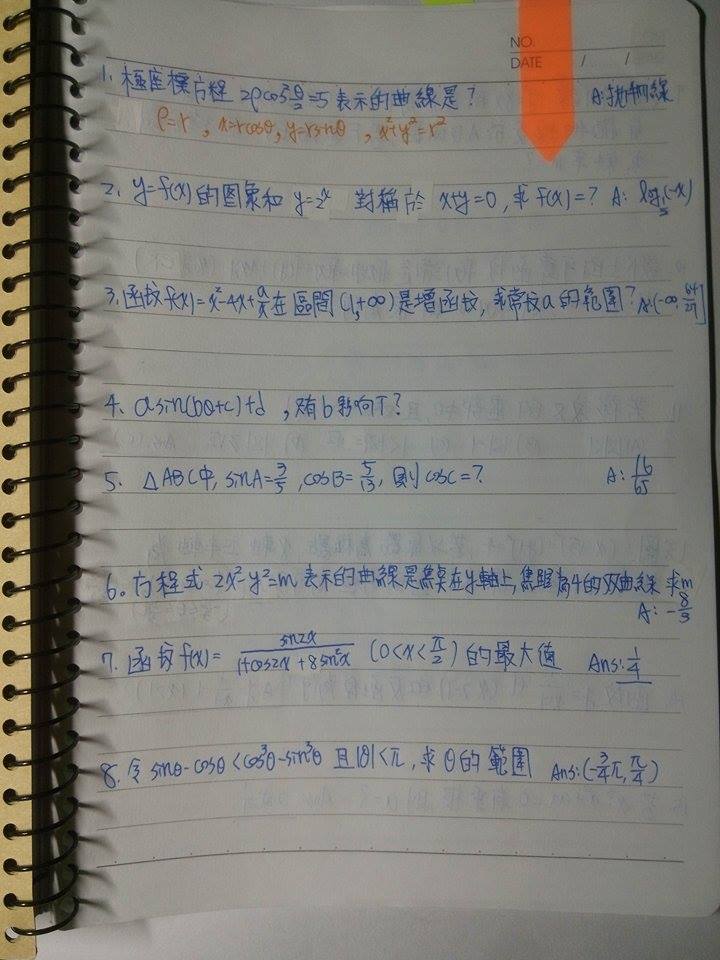 NO.
DATE / /
1. 極座標方程 2ρcos²θ/2=5 表示的曲線是？ A:拋物線
ρ=r , x=rcosθ, y=rsinθ , x²+y²=r²
2. y=f(x)的图象和 y=2ˣ 對稱於 x+y=0 , 求 f(x)=? A: log½(-x)
3. 函数f(x)=x²-4x+a/x在區間(1,+∞)是增函数, 求常数a的範圍? A:(-∞, 64/27]
4. asin(bθ+c)+d , 只有b影响T?
5. △ABC中, sinA=3/5 , cosB=5/13, 則 cosC=? A: 16/65
6. 方程式 2x²-y²=m 表示的曲線是焦點在y軸上, 焦距為4的双曲線 求m
A: -8/3
7. 函数f(x)= sin2x/(1+cos2x+8sin²x) (0<x<π/2)的最大值 Ans:1/4
8. 令 sinθ-cosθ<cos³θ-sin³θ 且|θ|<π, 求θ的範圍 Ans:(-3/4π, π/4)